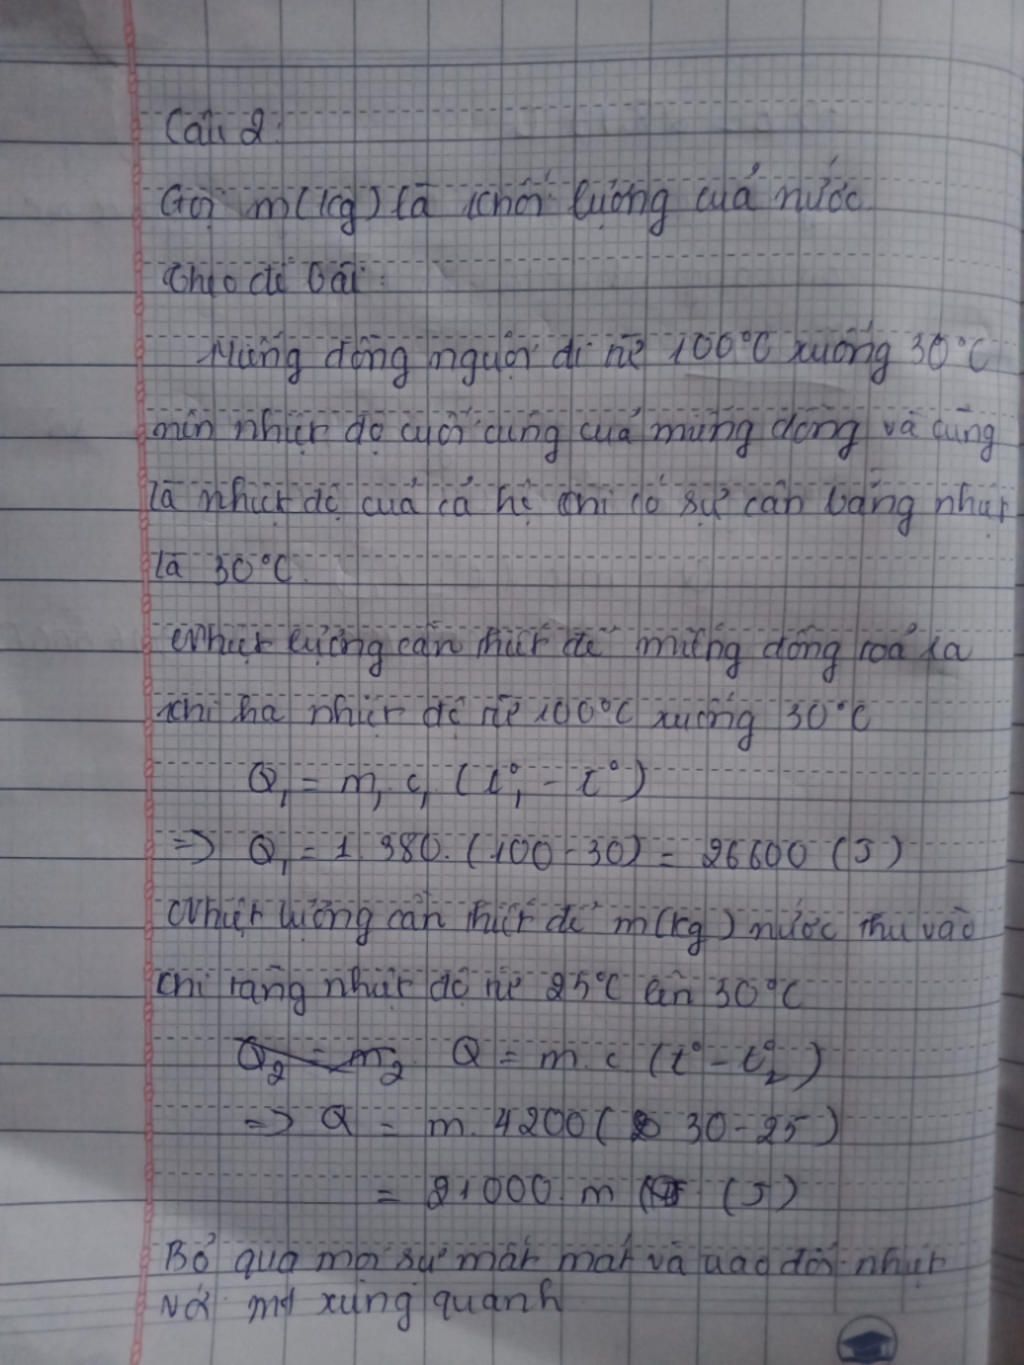 Câu 2:
Gọi m(kg) là khối lượng của nước
Theo đề bài:
Miếng đồng nguội đi từ 100°C xuống 30°C
nên nhiệt độ cuối cùng của miếng đồng và cũng
là nhiệt độ của cả hệ khi có sự cân bằng nhiệt
là 30°C.
Nhiệt lượng cần thiết để miếng đồng toả ra
khi hạ nhiệt độ từ 100°C xuống 30°C
Q₁ = m₁ c₁ (t°₁ - t°)
=> Q₁ = 1.380.(100-30) = 26600 (J)
Nhiệt lượng cần thiết để m(kg) nước thu vào
khi tăng nhiệt độ từ 25°C lên 30°C
Q₂ = m₂ Q = m.c (t° - t°₂)
=> Q = m.4200( 30-25)
= 21000.m (J)
Bỏ qua mọi sự mất mát và trao đổi nhiệt
với mt xung quanh